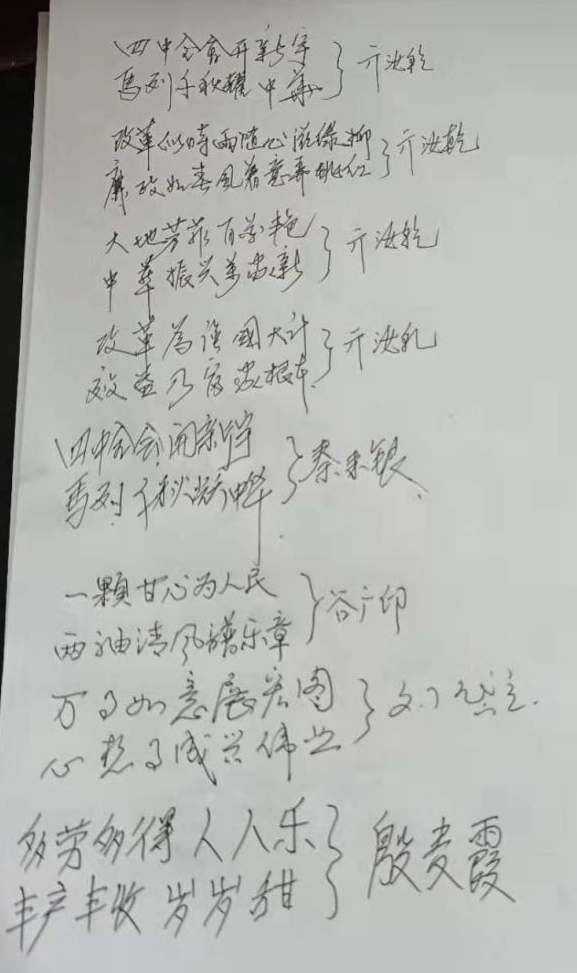 四中全会开新宇
馬列千秋耀中華 } 亓汝乾
改革似時雨随心滋绿柳
廉政如春風着意弄桃红 } 亓汝乾
大地芳菲百花艳
中華振兴万家新 } 亓汝乾
改革為强國大计
效益乃富家根本 } 亓汝乾
四中全会開新宇
馬列千秋耀中华 } 秦来银
一颗甘心为人民
两袖清风谱乐章 } 谷广印
万事如意展宏图
心想事成兴伟业
多劳多得人人乐
丰产丰收岁岁甜 } 殷麦霞